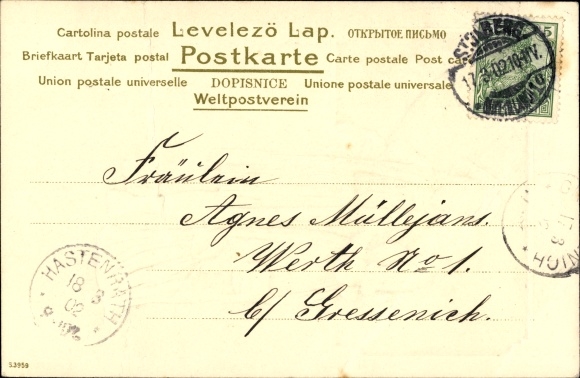 Cartolina postale Levelező Lap. ОТКРЫТОЕ ПИСЬМО
Briefkaart Tarjeta postal Postkarte Carte postale Post ca
Union postale universelle DOPISNICE Unione postale universale
Weltpostverein
STOLBERG
17.3.02.10-11V.
5
Fräulein
Agnes Müllejans.
Werth No 1.
b/ Gressenich.
HASTENRATH
18 3
02
17 3
NICH
S3959